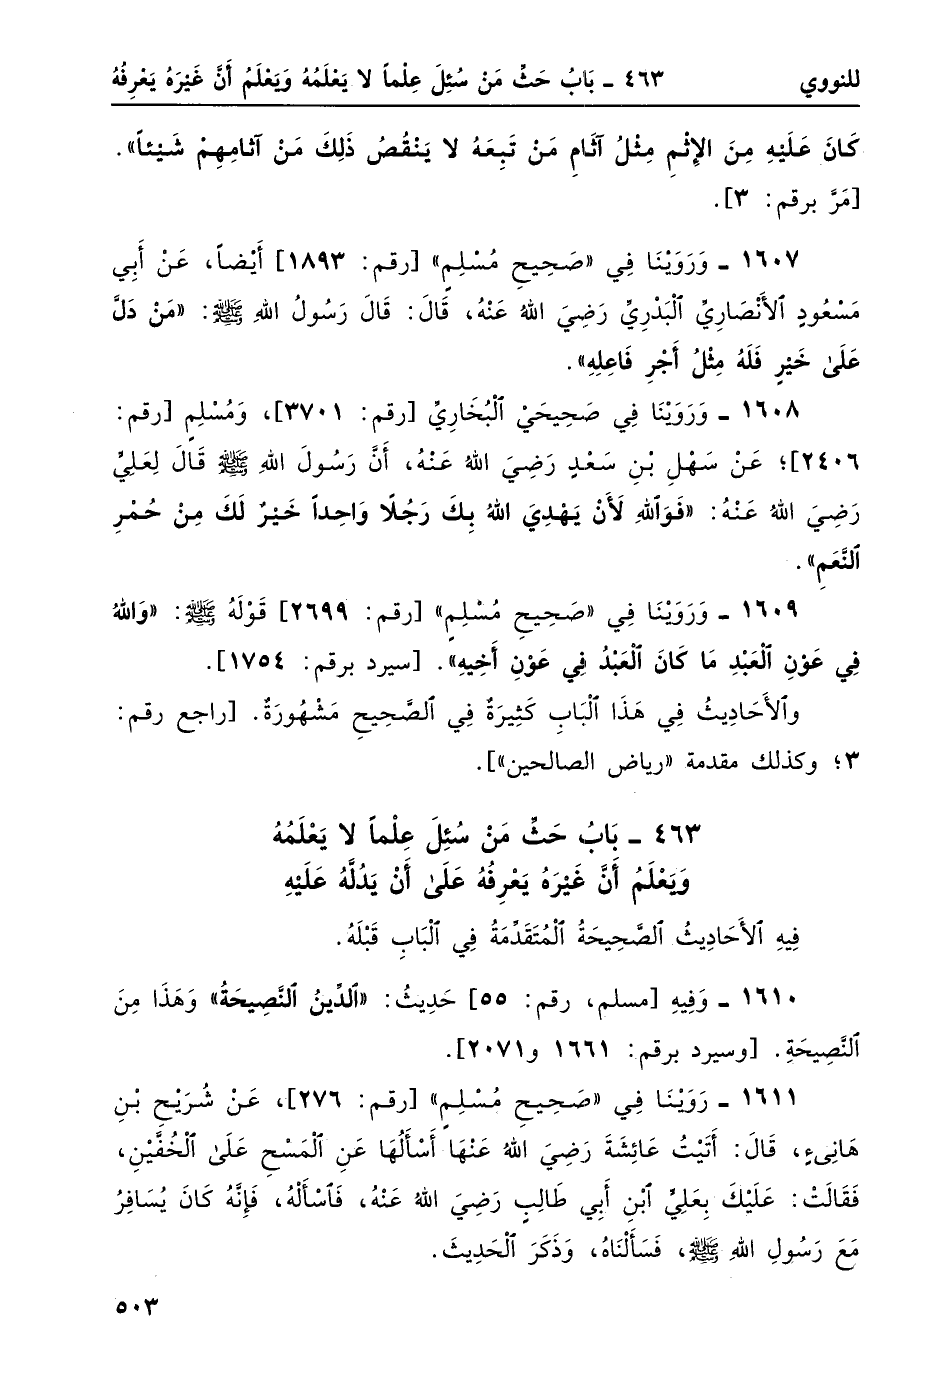 للنووي ٤٦٣ ـ بَابُ حَثِّ مَنْ سُئِلَ عِلْماً لا يَعْلَمُهُ وَيَعْلَمُ أَنَّ غَيْرَهُ يَعْرِفُهُ
كَانَ عَلَيْهِ مِنَ الإِثْمِ مِثْلُ آثَامِ مَنْ تَبِعَهُ لا يَنْقُصُ ذَلِكَ مَنْ آثامِهِمْ شَيْئاً».
[مَرَّ برقم: ٣].
١٦٠٧ ـ وَرَوَيْنَا فِي «صَحِيحِ مُسْلِمٍ» [رقم: ١٨٩٣] أَيْضاً، عَنْ أَبِي
مَسْعُودٍ ٱلأَنْصَارِيِّ ٱلْبَدْرِيِّ رَضِيَ اللهُ عَنْهُ، قَالَ: قَالَ رَسُولُ اللهِ ﷺ: «مَنْ دَلَّ
عَلَىٰ خَيْرٍ فَلَهُ مِثْلُ أَجْرِ فَاعِلِهِ».
١٦٠٨ ـ وَرَوَيْنَا فِي صَحِيحَيْ ٱلْبُخَارِيِّ [رقم: ٣٧٠١]، وَمُسْلِمٍ [رقم:
٢٤٠٦]؛ عَنْ سَهْلِ بْنِ سَعْدٍ رَضِيَ اللهُ عَنْهُ، أَنَّ رَسُولَ اللهِ ﷺ قَالَ لِعَلِيٍّ
رَضِيَ اللهُ عَنْهُ: «فَوَٱللهِ لَأَنْ يَهْدِيَ اللهُ بِكَ رَجُلًا وَاحِداً خَيْرٌ لَكَ مِنْ حُمْرِ
ٱلنَّعَمِ».
١٦٠٩ ـ وَرَوَيْنَا فِي «صَحِيحِ مُسْلِمٍ» [رقم: ٢٦٩٩] قَوْلَهُ ﷺ: «وَاللهُ
فِي عَوْنِ ٱلْعَبْدِ مَا كَانَ ٱلْعَبْدُ فِي عَوْنِ أَخِيهِ». [سيرد برقم: ١٧٥٤].
وٱلأَحَادِيثُ فِي هَذَا ٱلْبَابِ كَثِيرَةٌ فِي ٱلصَّحِيحِ مَشْهُورَةٌ. [راجع رقم:
٣؛ وكذلك مقدمة «رياض الصالحين»].
٤٦٣ ـ بَابُ حَثِّ مَنْ سُئِلَ عِلْماً لا يَعْلَمُهُ
وَيَعْلَمُ أَنَّ غَيْرَهُ يَعْرِفُهُ عَلَىٰ أَنْ يَدُلَّهُ عَلَيْهِ
فِيهِ ٱلأَحَادِيثُ ٱلصَّحِيحَةُ ٱلْمُتَقَدِّمَةُ فِي ٱلْبَابِ قَبْلَهُ.
١٦١٠ ـ وَفِيهِ [مسلم، رقم: ٥٥] حَدِيثُ: «ٱلدِّينُ ٱلنَّصِيحَةُ» وَهَذَا مِنَ
ٱلنَّصِيحَةِ. [وسيرد برقم: ١٦٦١ و٢٠٧١].
١٦١١ ـ رَوَيْنَا فِي «صَحِيحِ مُسْلِمٍ» [رقم: ٢٧٦]، عَنْ شُرَيْحِ بْنِ
هَانِىءٍ، قَالَ: أَتَيْتُ عَائِشَةَ رَضِيَ اللهُ عَنْهَا أَسْأَلُهَا عَنِ ٱلْمَسْحِ عَلَىٰ ٱلْخُفَّيْنِ،
فَقَالَتْ: عَلَيْكَ بِعَلِيِّ ٱبْنِ أَبِي طَالِبٍ رَضِيَ اللهُ عَنْهُ، فَٱسْأَلْهُ، فَإِنَّهُ كَانَ يُسَافِرُ
مَعَ رَسُولِ اللهِ ﷺ، فَسَأَلْنَاهُ، وَذَكَرَ ٱلْحَدِيثَ.
٥٠٣